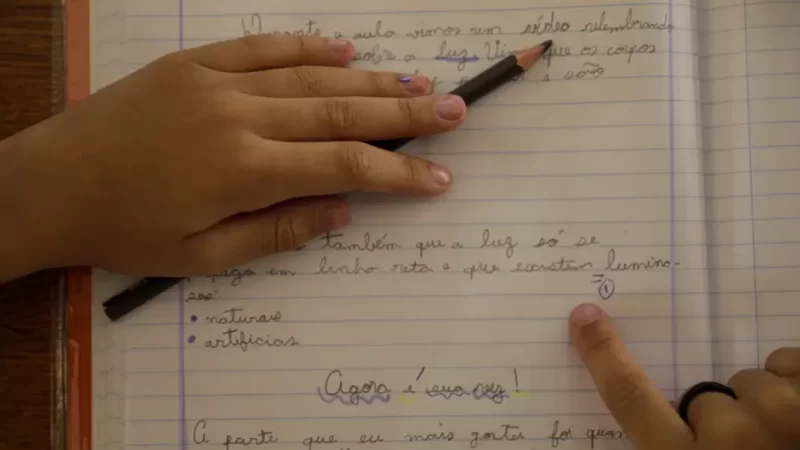 Durante a aula vimos um vídeo relembrando
sobre a luz. Vimos que os corpos
e são
também que a luz só se
em linha reta e que existem lumino-
sos:
① 
• naturais
• artificias
Agora é sua vez!
A parte que eu mais gostei foi quan